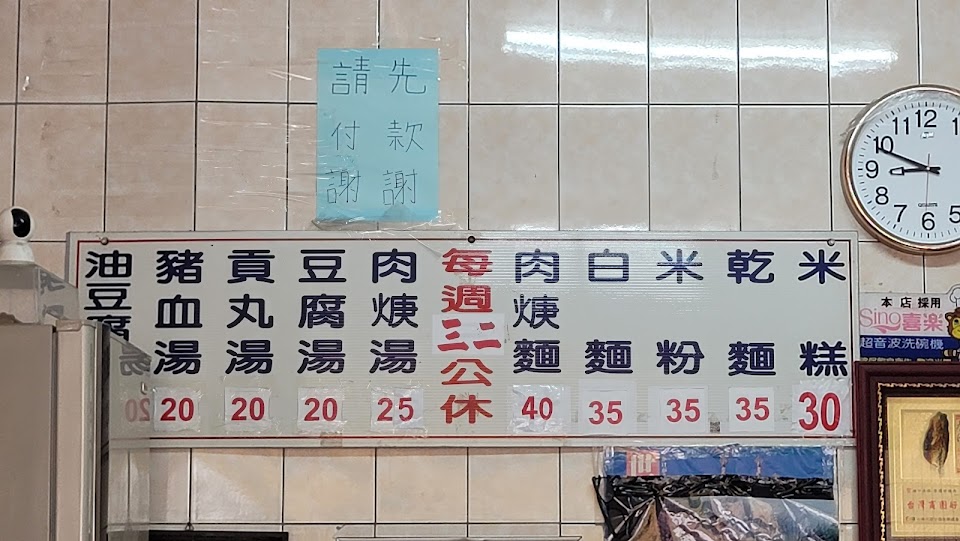 請先
付款
謝謝
米糕 30
乾麵 35
米粉 35
白麵 35
肉焿麵 40
每週二三公休
肉焿湯 25
豆腐湯 20
貢丸湯 20
豬血湯 20
油豆腐湯 20
11 12
10
9
8
7 6 5
本店採用
Sing喜樂
超音波洗碗機